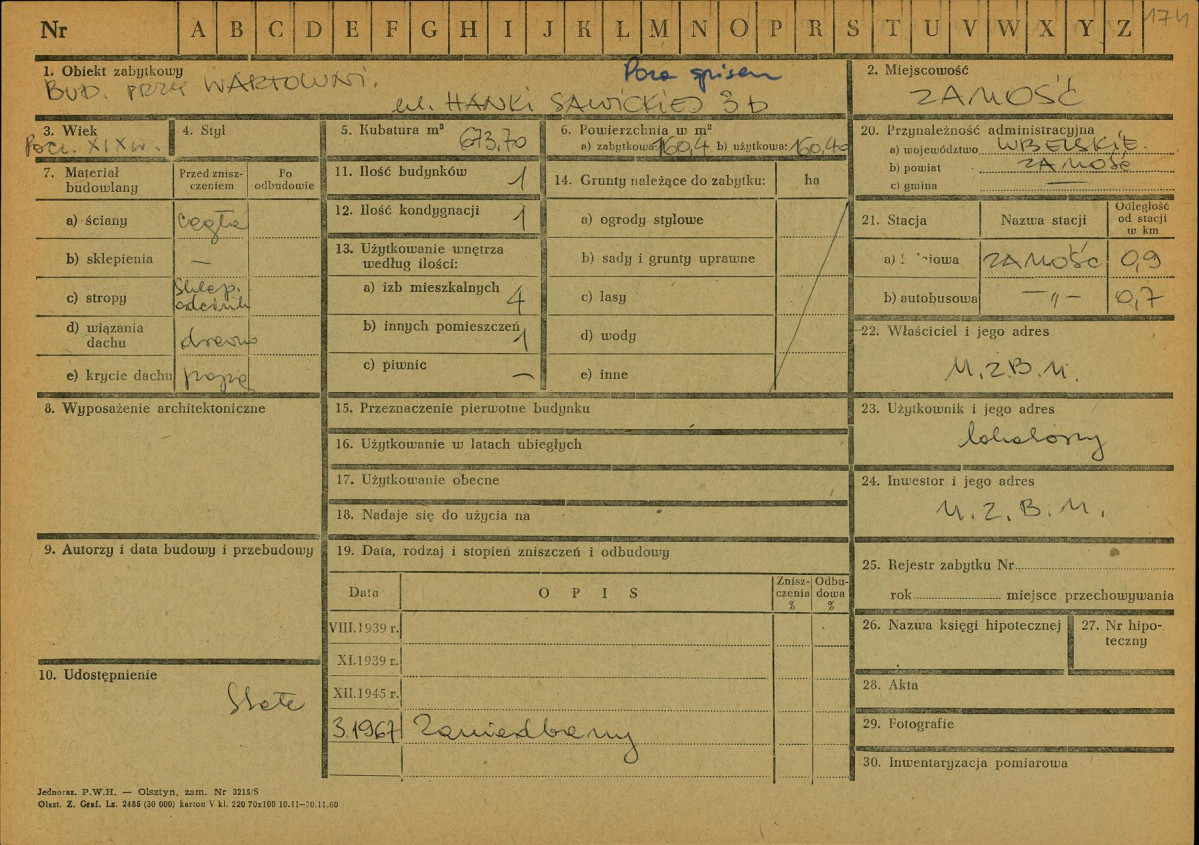 Nr A B C D E F G H I J K L M N O P R S T U V W X Y Z
1. Obiekt zabytkowy
Poza spisem
BUD. PRZY WARTOWNI.
ul. HANKI SAWICKIEJ 3b
2. Miejscowość
ZAMOŚĆ
3. Wiek
Pocz. XIX w.
4. Styl
5. Kubatura m³ 673,70
6. Powierzchnia w m²
a) zabytkowa: 160,4 b) użytkowa: 160,40
7. Materiał budowlany
Przed zniszczeniem
Po odbudowie
a) ściany cegła
b) sklepienia —
c) stropy sklep. odcink
d) wiązania dachu drewno
e) krycie dachu papa
11. Ilość budynków 1
12. Ilość kondygnacji 1
13. Użytkowanie wnętrza
według ilości:
a) izb mieszkalnych 4
b) innych pomieszczeń 1
c) piwnic —
14. Grunty należące do zabytku: ha
a) ogrody stylowe
b) sady i grunty uprawne
c) lasy
d) wody
e) inne
20. Przynależność administracyjna
a) województwo LUBELSKIE
b) powiat ZAMOŚĆ
c) gmina —
21. Stacja Nazwa stacji Odległość od stacji w km
a) ZAMOŚĆ 0,9
b) autobusowa —„— 0,7
22. Właściciel i jego adres
M.Z.B.M.
8. Wyposażenie architektoniczne
15. Przeznaczenie pierwotne budynku
16. Użytkowanie w latach ubiegłych
17. Użytkowanie obecne
18. Nadaje się do użycia na
23. Użytkownik i jego adres
lokatorzy
24. Inwestor i jego adres
M.Z.B.M.
9. Autorzy i data budowy i przebudowy
19. Data, rodzaj i stopień zniszczeń i odbudowy
Data OPIS Zniszczenia % Odbudowa %
VIII.1939 r.
XI.1939 r.
XII.1945 r.
3.1967 Zaniedbany
10. Udostępnienie
Stałe
25. Rejestr zabytku Nr
rok miejsce przechowywania
26. Nazwa księgi hipotecznej
27. Nr hipoteczny
28. Akta
29. Fotografie
30. Inwentaryzacja pomiarowa
Jednoraz. P.W.H. — Olsztyn, zam. Nr 3215/S
Olszt. Z. Graf. Lz. 2485 (30 000) karton V kl. 220 70x100 10.11—30.11.60